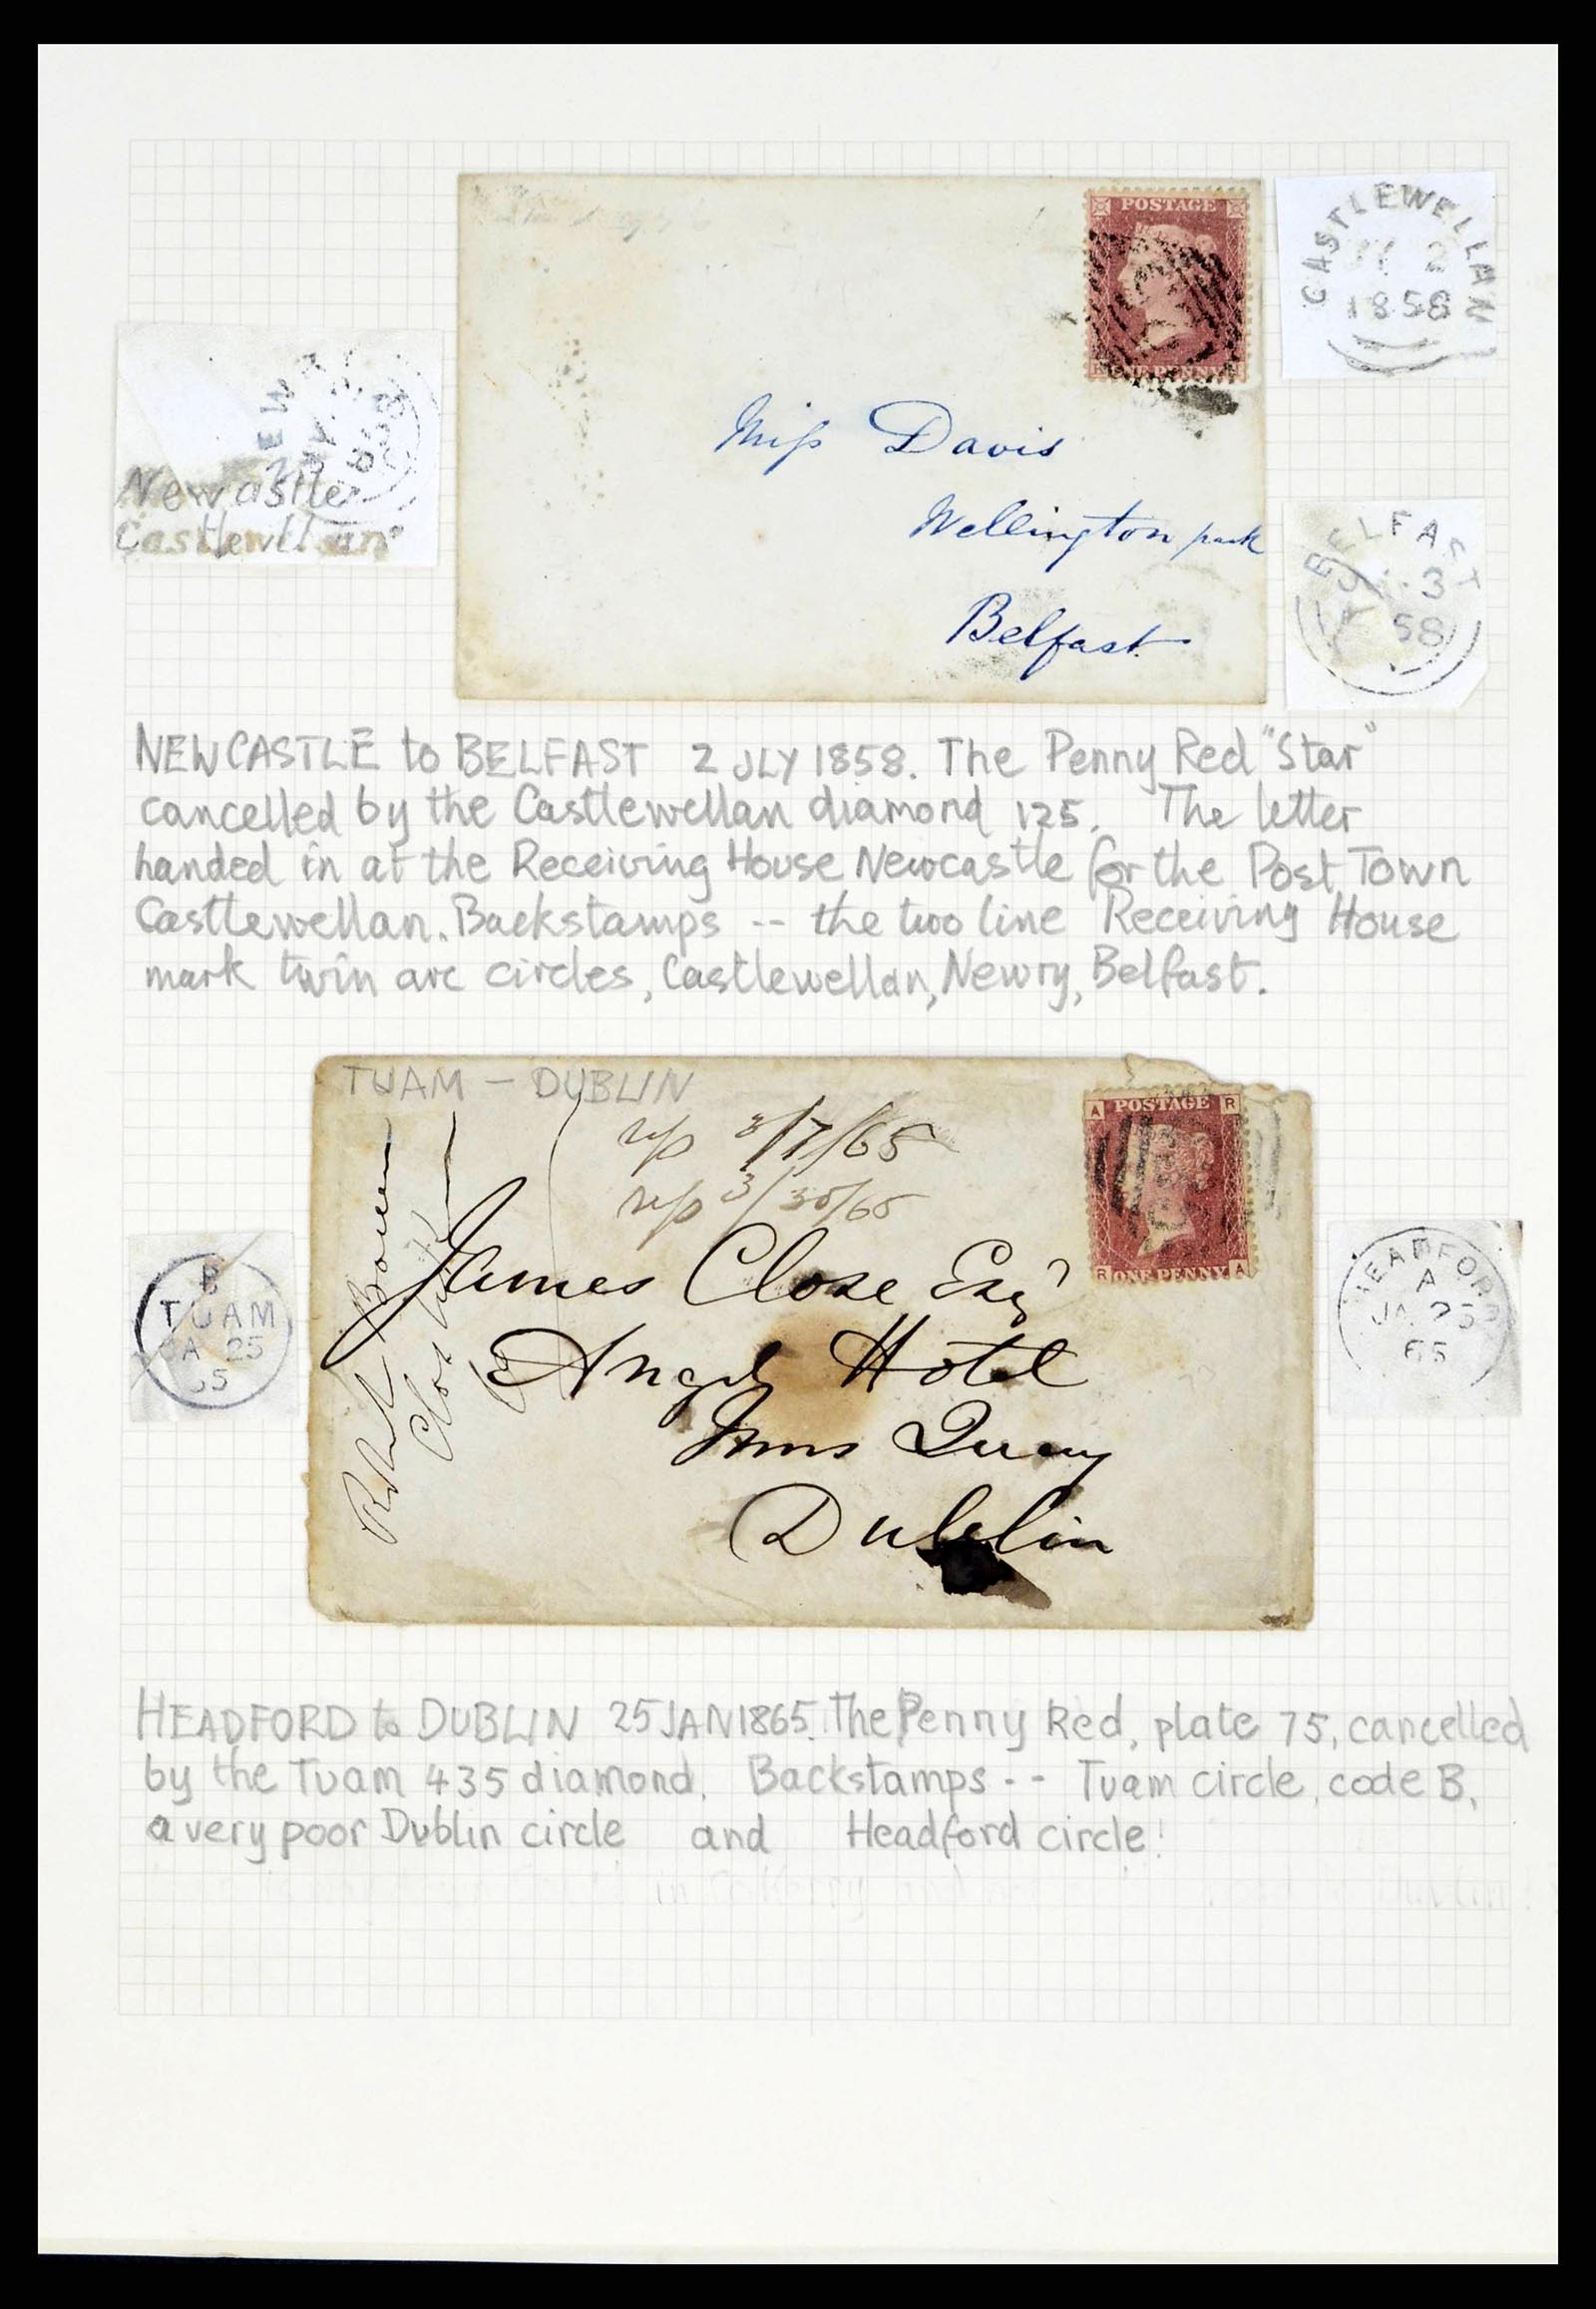 POSTAGE
ONE PENNY
CASTLEWELLAN
2
1858
NEW
Newcastle
Castlewellan
Miss Davis
Wellington park
Belfast
BELFAST
3
58
NEWCASTLE to BELFAST 2 JLY 1858. The Penny Red "Star"
cancelled by the Castlewellan diamond 125. The letter
handed in at the Receiving House Newcastle for the Post Town
Castlewellan. Backstamps -- the two line Receiving House
mark twin arc circles, Castlewellan, Newry, Belfast.
TUAM - DUBLIN
3/7/65
3/30/65
A POSTAGE R
R ONE PENNY A
James Close Esqr
Angel Hotel
Inns Quay
Dublin
Robt Bowen
B
TUAM
JA 25
65
HEADFORD
A
JA 25
65
HEADFORD to DUBLIN 25 JAN 1865. The Penny Red, plate 75, cancelled
by the Tuam 435 diamond. Backstamps -- Tuam circle, code B,
a very poor Dublin circle and Headford circle!